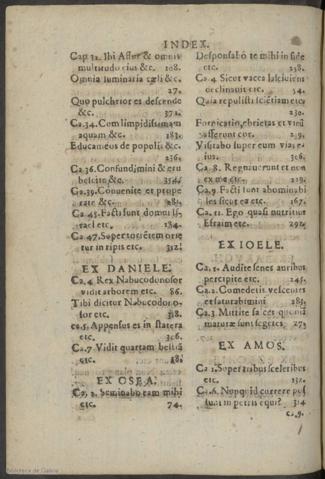 INDEX.
Cap 31. Ibi Assur & omnis
multitudo eius &c. 108.
Omnia luminaria cæli &c.
27.
Quo pulchrior es descende
&c. 371.
Ca.34. Cum limpidissimam
aquam &c. 183.
Educam eos de populis &c.
236.
Ca 36. Confundimini & eru
bescite &c. 354.
Ca.39. Conuenite et prope
rate &c.
Ca 45. Facti sunt domui Is-
rael etc. 184.
Ca 47. Super torrētem orie
tur in ripis etc. 312.
EX DANIELE.
Ca.4 Rex Nabucodonosor
vidit arborem etc. 86.
Tibi dicitur Nabucodor o-
sor etc. 318.
ca.5. Appensus es in statera
etc. 306.
Ca.7. Vidit quartam bestiā
etc.
EX OSEA.
Ca. 2. Seminabo eam mihi
etc. 74.
Desponsabo te mihi in fide
etc. 238.
Ca 4 Sicut vacca lasciuiens
declinauit etc. 54.
Quia repulisti sciētiam etc
230.
Fornicatio, ebrietas et vinū
auferunt cor. 29.
Visitabo super eum vias e-
ius. 306.
Ca 8. Regnauerunt et non
ex me etc. 219.
Ca.9 Facti sunt abominabi
les sicut ea etc. 167.
Ca. 11. Ego quasi nutritius
Efraim etc. 292.
EX IOELE.
Ca.1. Audite senes auribus
percipite etc. 245.
Ca.2. Comedetis vescentes
et saturabimini 285.
Ca.3 Mittite falces quoniā
maturæ sunt segetes 273.
EX AMOS.
Ca 1. Super tribus sceleribus
etc. 132.
Ca.6. Nunquid currere pos
sunt in petris equi? 314
Ca,9.